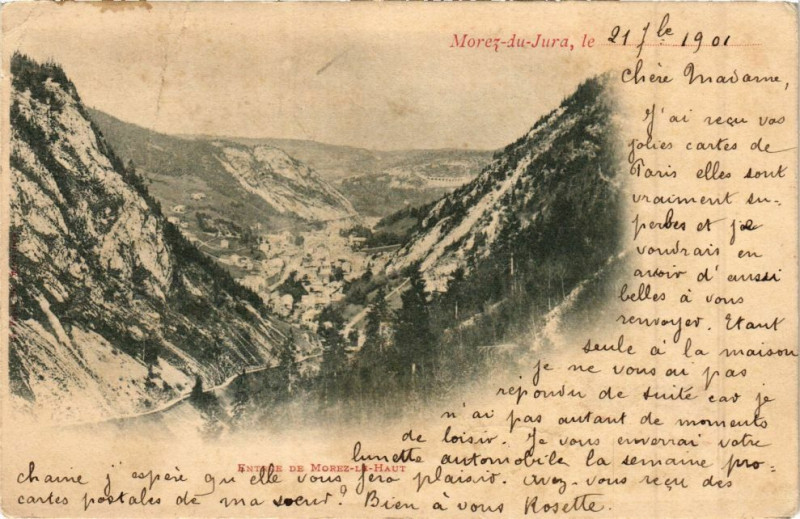 Morez-du-Jura, le 21 7bre 1901
Chère Madame,
J'ai reçu vos
jolies cartes de
Paris elles sont
vraiment su-
perbes et je
voudrais en
avoir d'aussi
belles à vous
renvoyer. Etant
seule à la maison
je ne vous ai pas
répondu de suite car je
n'ai pas autant de moments
de loisir. Je vous enverrai votre
lunette automobile la semaine pro-
ENTRÉE DE MOREZ-LE-HAUT
chaine j'espère qu'elle vous fera plaisir. Avez-vous reçu des
cartes postales de ma sœur? Bien à vous Rosette.